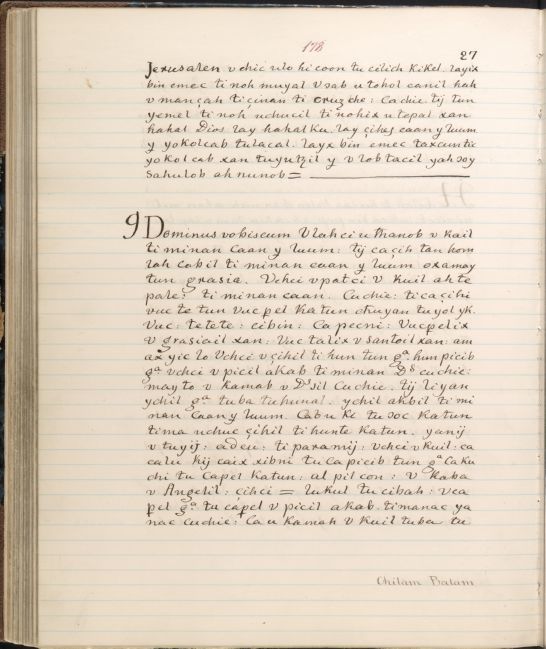 178
27
Jerusalen v chic ulo hi coon tu cilich Kikel. layix
bin emec ti noh muyal v sab u tohol canil hah
v mançah ti çinan ti cruz che: Cachie. tij tun
yemel ti noh uchucil ti nohix u tepal xan.
hahal Dios lay hahal Ku. lay çihes caan y luum
y yokolcab tulacal. layx bin emec taxcuntic
yokol cab xan tuyutzil y v lob tacil yah ɔoy
Sahulob ah nunob =
9 Dominus vobiscum Vlahci u thanob v kail
ti minan Caan y luum: tij caçih tan hom
lah cabil ti minan caan y luum oxamay
tun grasia. Vchci v patci v kuil ah te
pale: ti minan caan. Cuchie: ti caçihi
vuc te tun Vuc pel Katun chuyan tuyol yk.
Vac: tetete: cibin: Ca pecni: Vucpelix
v grasiail xan: Vuc talix v santoil xan: am
ax yic lo Vchci v çihil ti hun tun gª. hun picib
gª vchci v picil akab ti minan Dˢ cuchie:
mayto v kamab v Dˢil Cuchie. tij liyan
ychil gª tuba tuhunal. ychil akbil ti mi
nan Caan y luum. Ca bu ki tu ɔoc Katun
tima uchuc çihil ti hunte Katun. yanij
v tuyij: adeu: ti paramij: vchci v kuil: ca
calu kij caix xibni tu Ca picib tun gª Ca ku
chi tu Capel Katun: alpilcon: V kaba
v Angelil: cihci = lukul tu cibah: v ca
pel gª. tu cápel v picil akab. timanac ya
nac Cuchie: Ca u kamah v Kuil tuba tu
Chilam Balam